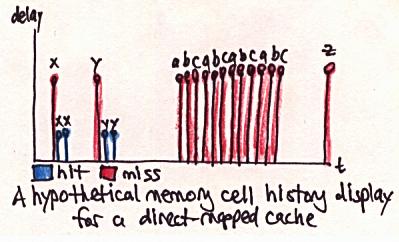 delay
x
xx
y
yy
abcabcabcabc
z
t
hit miss
A hypothetical memory cell history display
for a direct-mapped cache